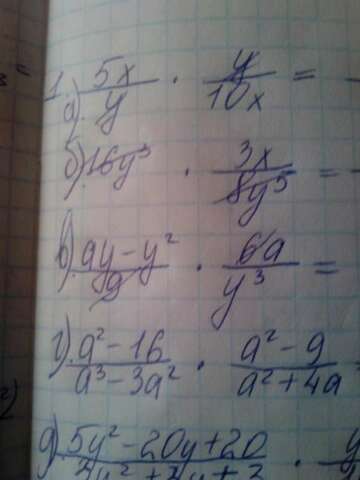 1. а) 5x/y · y/10x =
б) 16y³ · 3x/8y⁵ =
в) ay - y²/9 · 6a/y³ =
г) a² - 16/a³ - 3a² · a² - 9/a² + 4a
д) 5y² - 20y + 20